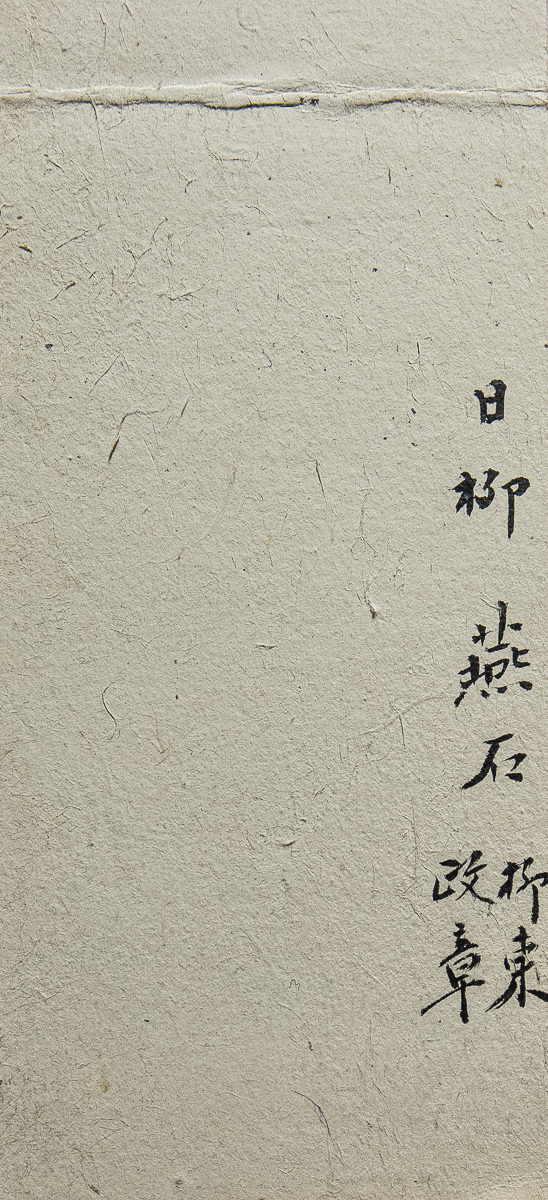 日柳燕石
柳東
政章